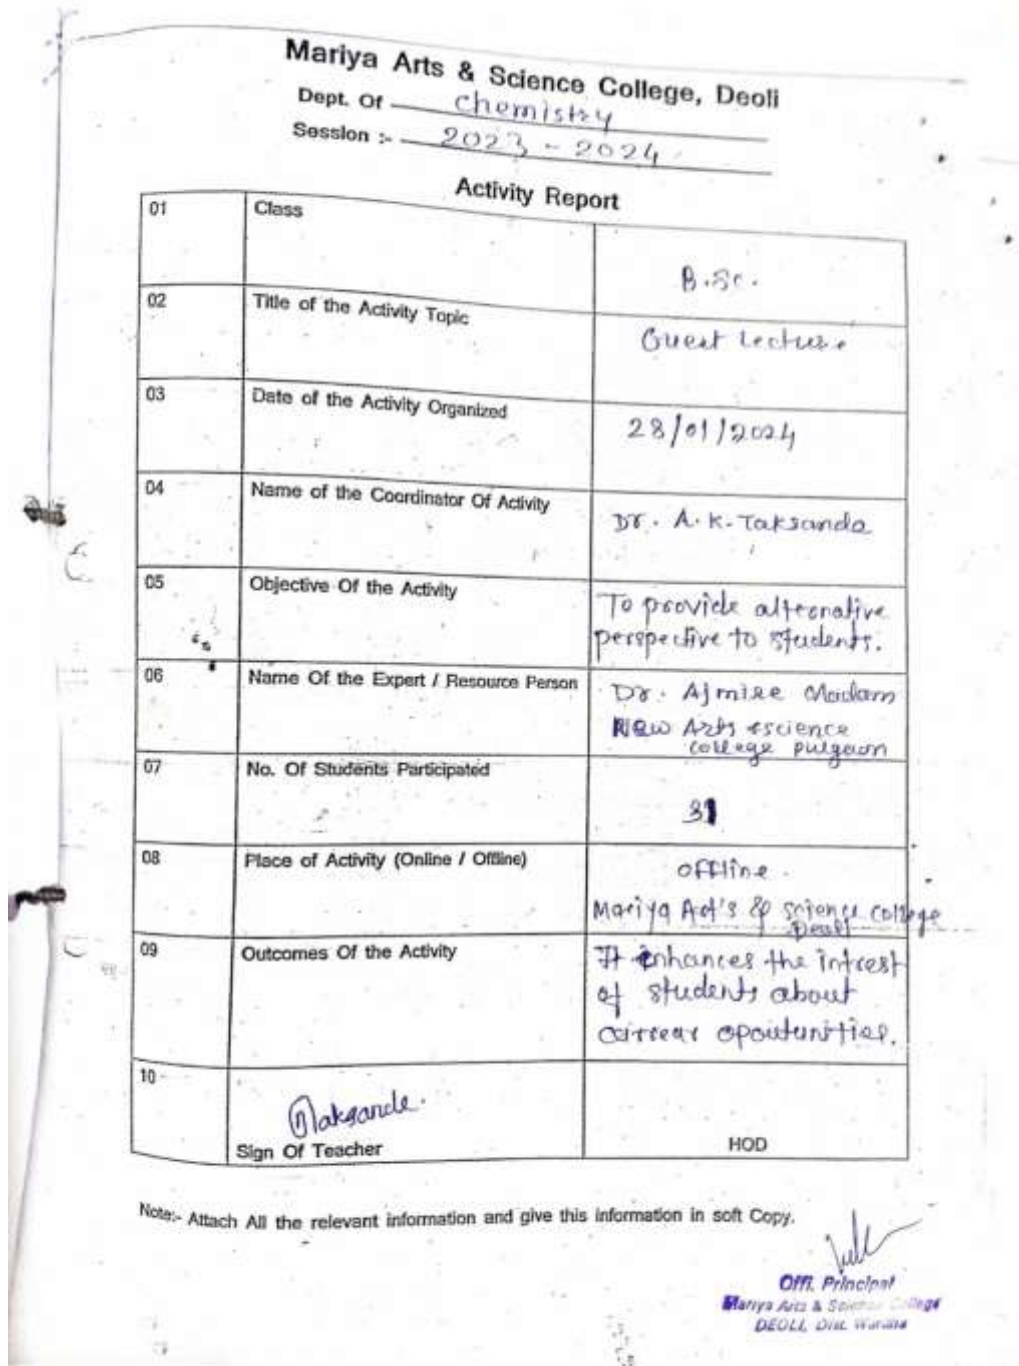 Mariya Arts & Science College, Deoli
Dept. Of chemistry
Session :- 2023 - 2024
Activity Report
01 Class B.Sc.
02 Title of the Activity Topic Guest Lecture
03 Date of the Activity Organized 28/01/2024
04 Name of the Coordinator Of Activity Dr. A. K. Taksande
05 Objective Of the Activity To provide alternative
perspective to students.
06 Name Of the Expert / Resource Person Dr. Ajmire Madam
New Arts & science
college pulgaon
07 No. Of Students Participated 31
08 Place of Activity (Online / Offline) offline.
Mariya Art's & science college
Deoli
09 Outcomes Of the Activity It enhances the intrest
of students about
carrear opoutunities.
10 Taksande.
Sign Of Teacher HOD
Note:- Attach All the relevant information and give this information in soft Copy.
Offi. Principal
Mariya Arts & Science College
DEOLI, Dist. Wardha